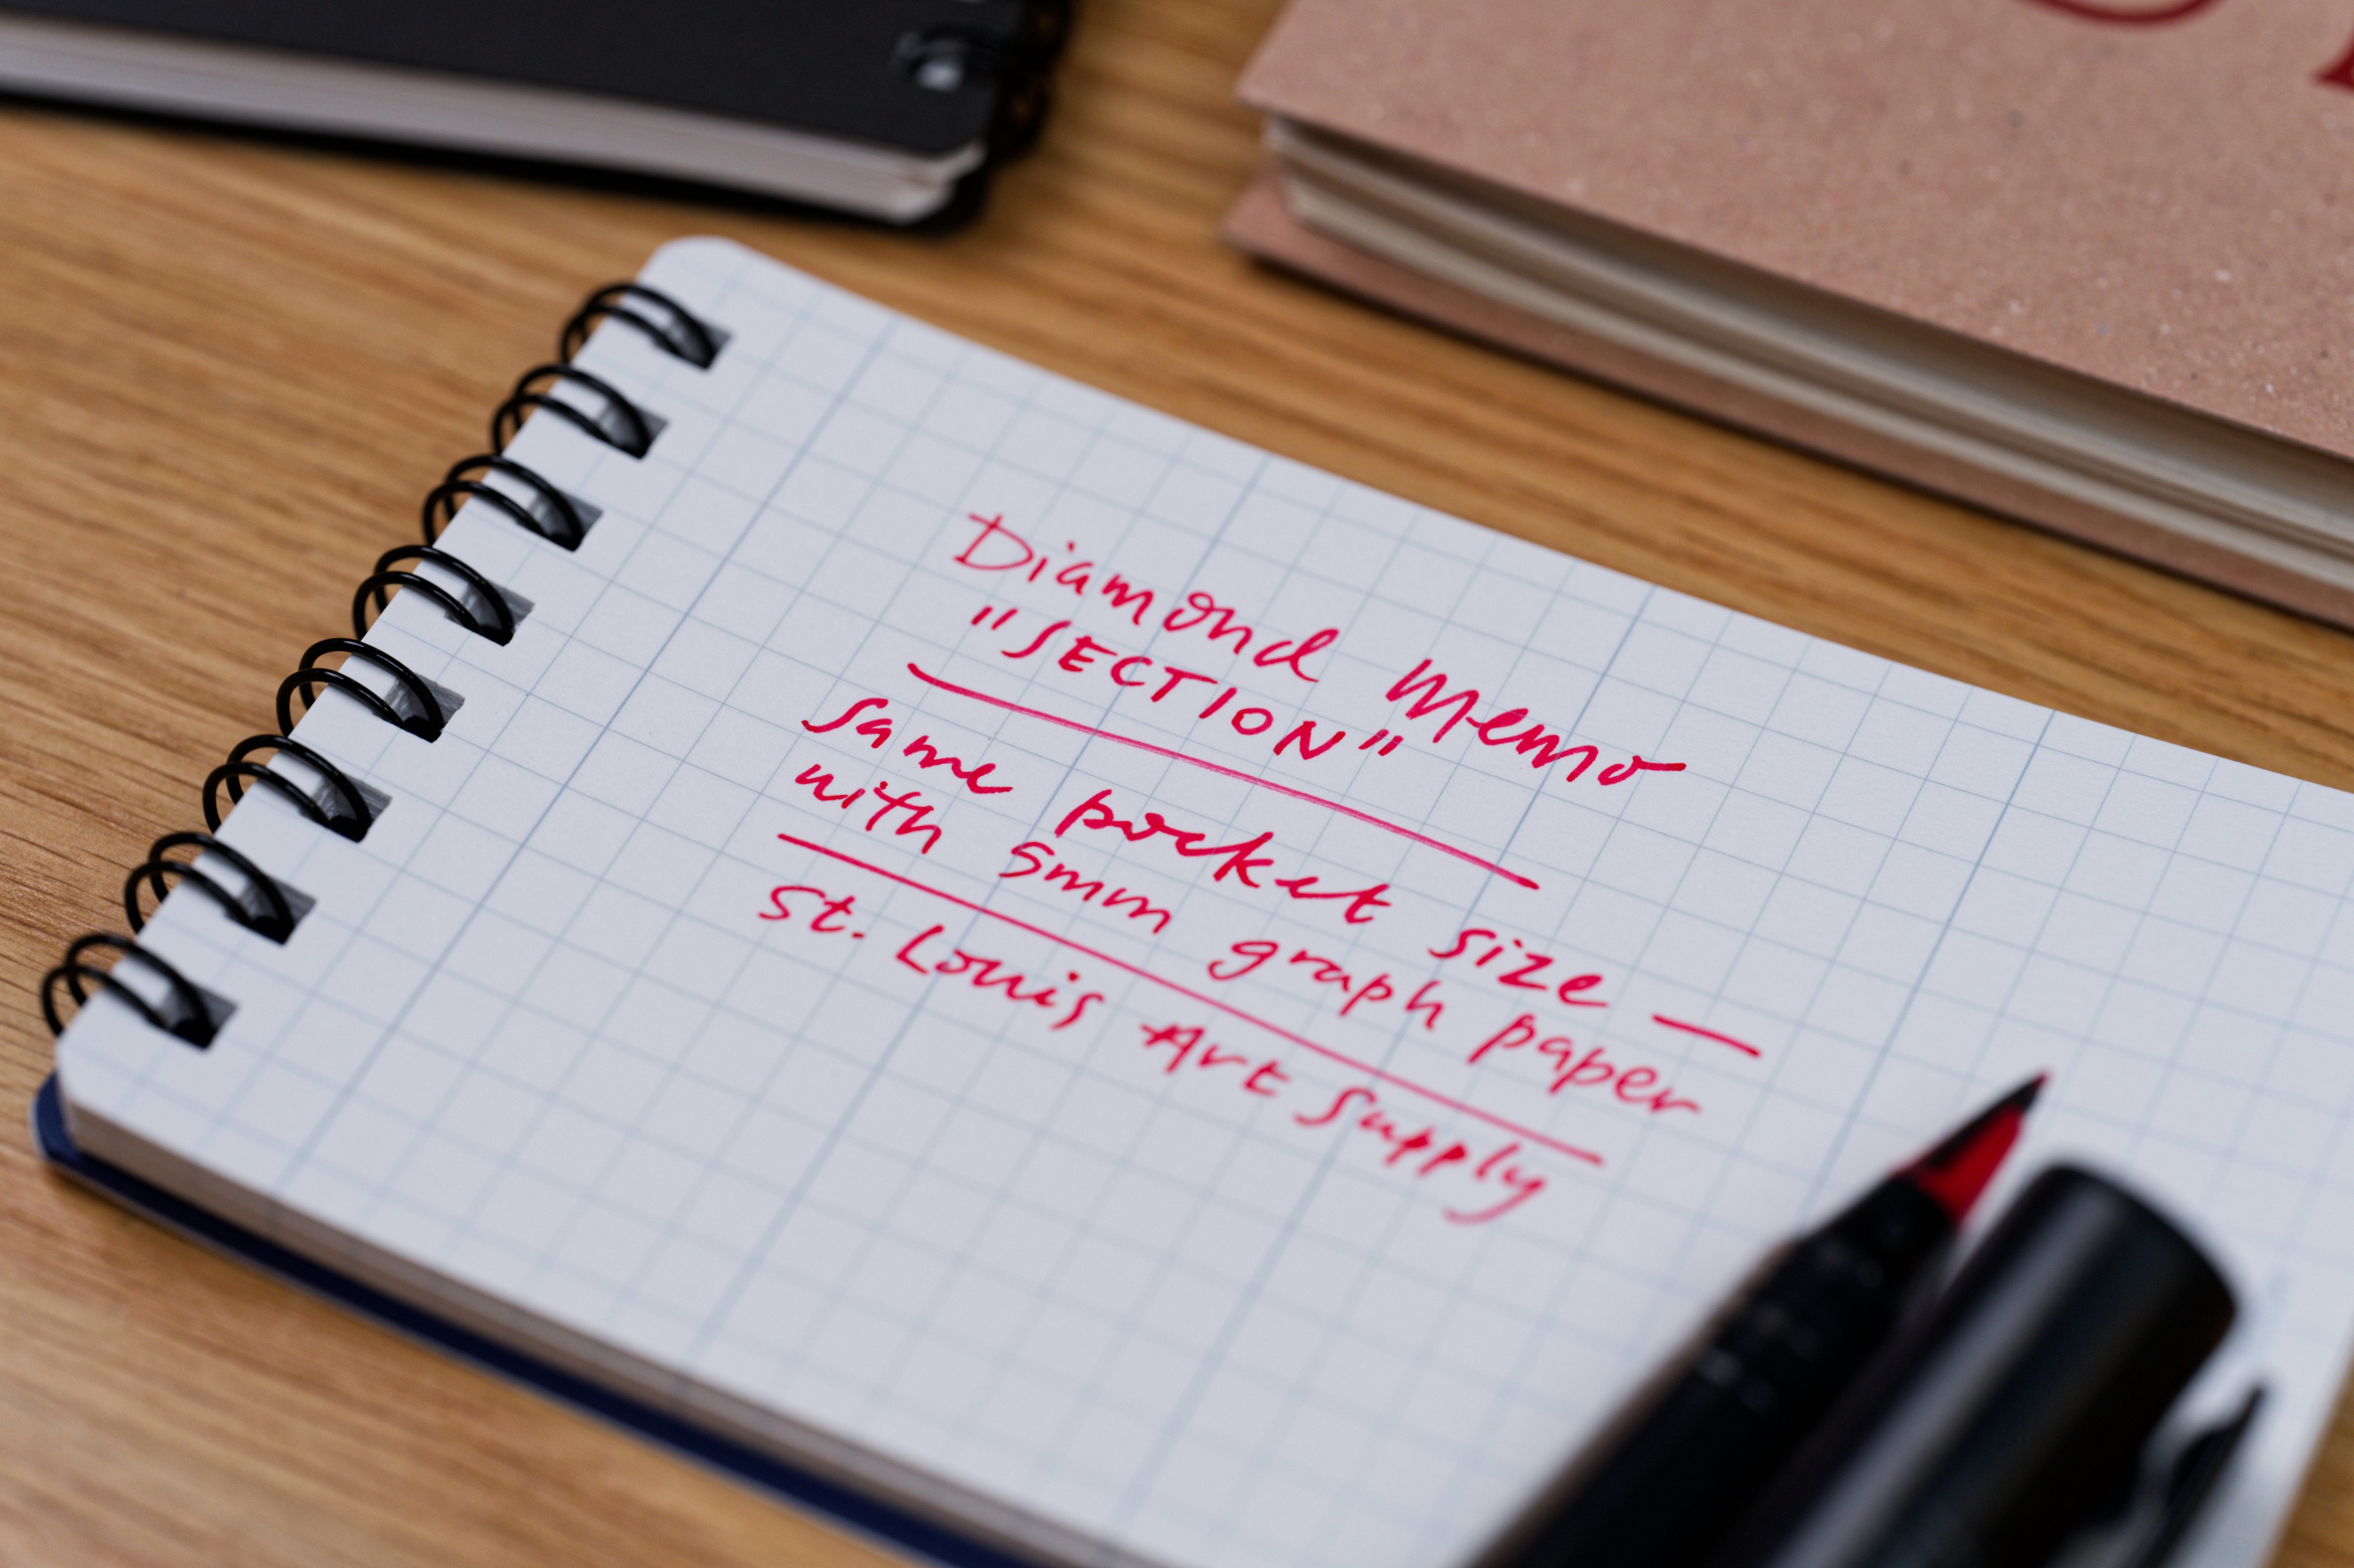 Diamond Memo
"SECTION"
Same pocket size —
with 5mm graph paper
St. Louis Art Supply